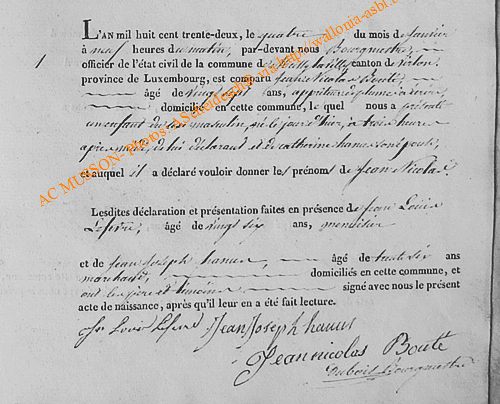 1
L'AN mil huit cent trente-deux, le quatre du mois de janvier
à neuf heures du matin, par-devant nous Bourgmestre,
officier de l'état civil de la commune de canton de Virton,
province de Luxembourg, est comparu Jean Nicolas Bouté,
âgé de vingt sept ans,
domicilié en cette commune, le quel nous a présenté
un enfant du sexe masculin, né le jour d'hier, à trois heures
après midi, de lui déclarant et de Catherine hanus son épouse,
et auquel il a déclaré vouloir donner les prénoms de Jean Nicolas
Lesdites déclaration et présentation faites en présence de Jean Louis
Lefevre, âgé de vingt six ans, menuisier
et de Jean Joseph hanus, âgé de trente six ans
marchand, domiciliés en cette commune, et
ont les père et témoins signé avec nous le présent
acte de naissance, après qu'il leur en a été fait lecture.
Louis Lefevre Jean Joseph hanus
Jean nicolas Bouté
Dubois Bourgmestre
AC MUSSON- Photos - http://wallonia-asbl